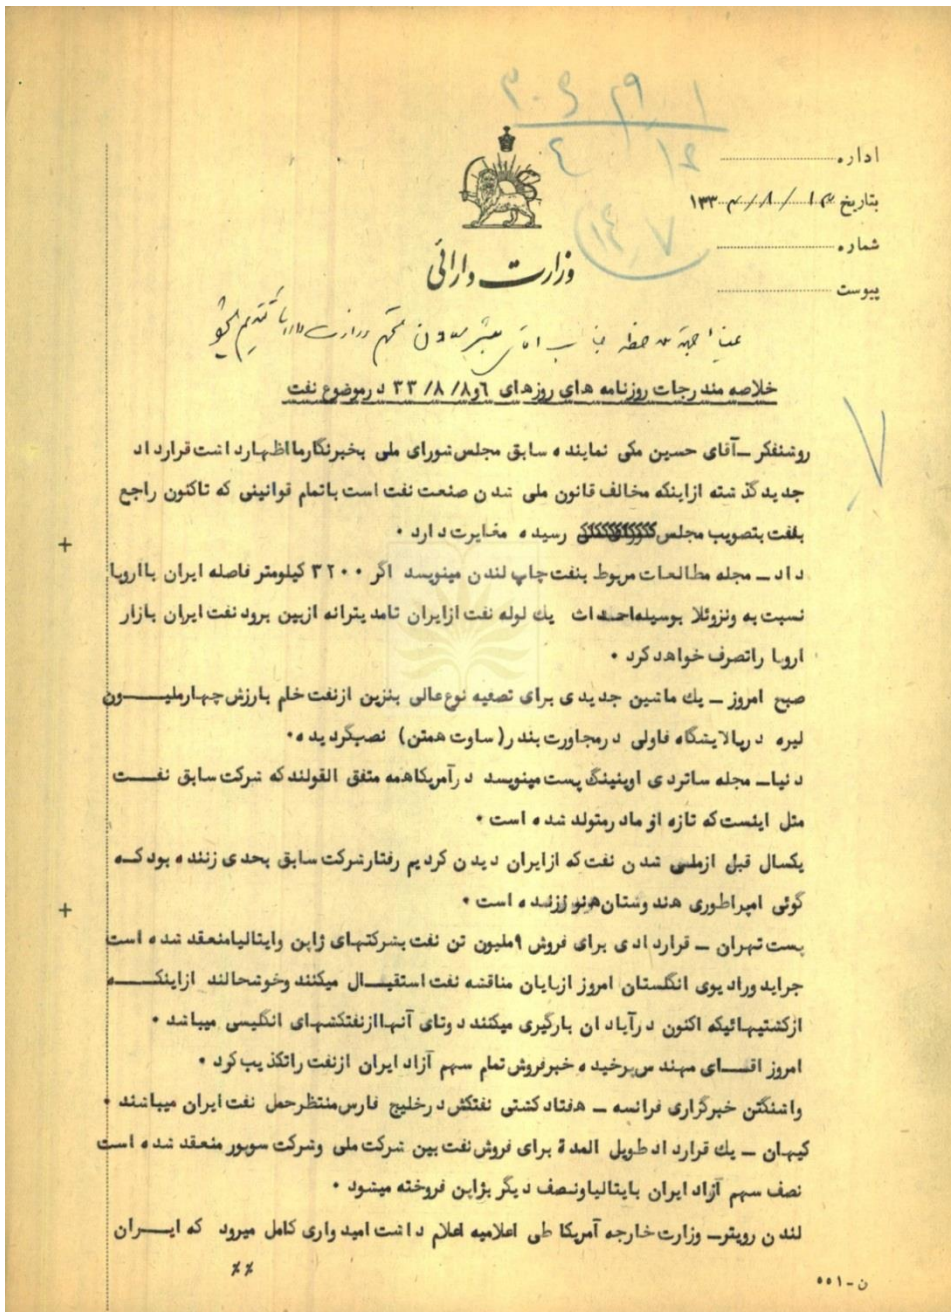 اداره
بتاریخ ۱۳۳
شماره
پیوست
وزارت دارائی
خلاصه مندرجات روزنامه های روزهای ۶و۸/ ۸/ ۳۳ درموضوع نفت
روشنفکر ـ آقای حسین مکی نماینده سابق مجلس شورای ملی بخبرنگارما اظهارداشت قرارداد
جدید گذشته ازاینکه مخالف قانون ملی شدن صنعت نفت است باتمام قوانینی که تاکنون راجع
بنفت بتصویب مجلس رسیده مغایرت دارد ۰
داد ـ مجله مطالعات مربوط بنفت چاپ لندن مینویسد اگر ۳۲۰۰ کیلومتر فاصله ایران بااروپا
نسبت به ونزوئلا بوسیله احداث یك لوله نفت ازایران تامدیترانه ازبین برود نفت ایران بازار
اروپا راتصرف خواهدکرد ۰
صبح امروز ـ یك ماشین جدیدی برای تصفیه نوع عالی بنزین ازنفت خام بارزش چهارملیـــون
لیره درپالایشگاه فاولی درمجاورت بندر(ساوت همتن) نصبگردیده۰
دنیا ـ مجله ساتردی اوینینگ پست مینویسد درآمریکاهمه متفق القولند که شرکت سابق نفـــت
مثل اینست که تازه از مادرمتولد شده است ۰
یکسال قبل ازملی شدن نفت که ازایران دیدن کردیم رفتارشرکت سابق بحدی زننده بود کـــه
گوئی امپراطوری هندوستان هنوز زنده است ۰
پست تهران ـ قراردادی برای فروش ۹ملیون تن نفت بشرکتهای ژاپن وایتالیامنعقد شده است
جراید ورادیوی انگلستان امروز ازپایان مناقشه نفت استقبـــال میکنند وخوشحالند ازاینکـــه
ازکشتیهائیکه اکنون درآبادان بارگیری میکنند دوتای آنهاازنفتکشهای انگلیسی میباشد ۰
امروز اقـــای مهندس پرخیده خبرفروش تمام سهم آزاد ایران ازنفت راتکذیب کرد ۰
واشنگتن خبرگزاری فرانسه ـ هفتادکشتی نفتکش درخلیج فارس منتظرحمل نفت ایران میباشند ۰
کیهان ـ یك قرارداد طویل المدة برای فروش نفت بین شرکت ملی وشرکت سوپور منعقد شده است
نصف سهم آزاد ایران بایتالیاونصف دیگر بژاپن فروخته میشود ۰
لندن رویترـ وزارت خارجه آمریکا طی اعلامیه اعلام داشت امیدواری کامل میرود که ایـــران
٪٪
ن - ۵۵۱